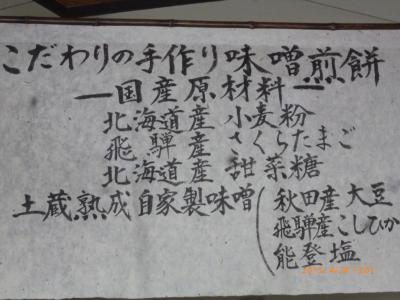 こだわりの手作り味噌煎餅
―国産原材料―
北海道産 小麦粉
飛騨産 さくらたまご
北海道産 甜菜糖
土蔵熟成自家製味噌
秋田産大豆
飛騨産こしひか
能登塩